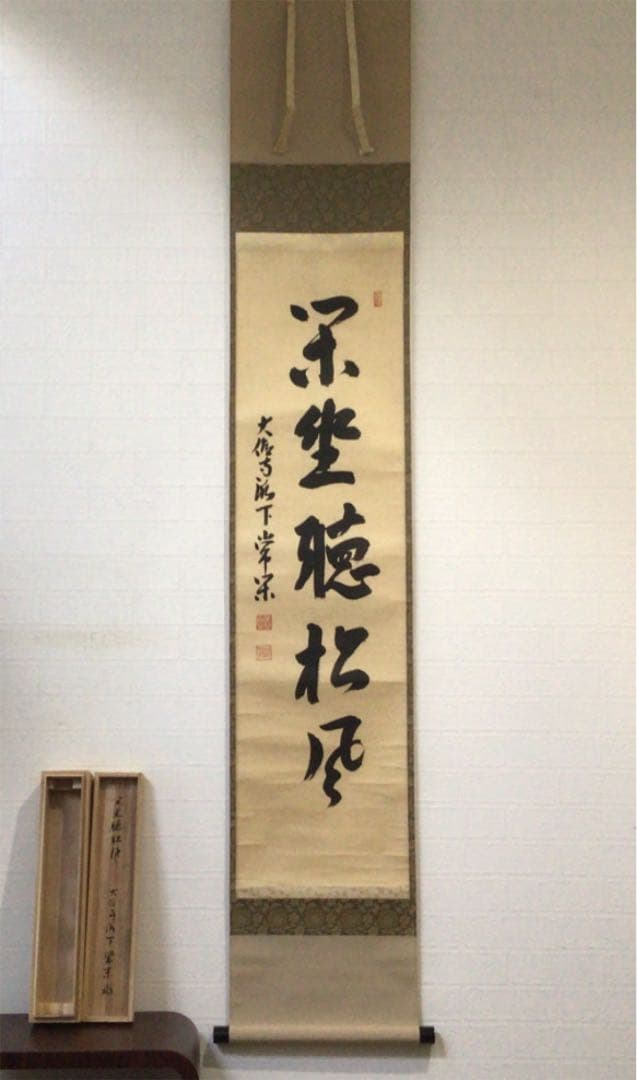 閑坐聴松風
大徳寺派下常
閑坐聴松風
大徳寺派下常